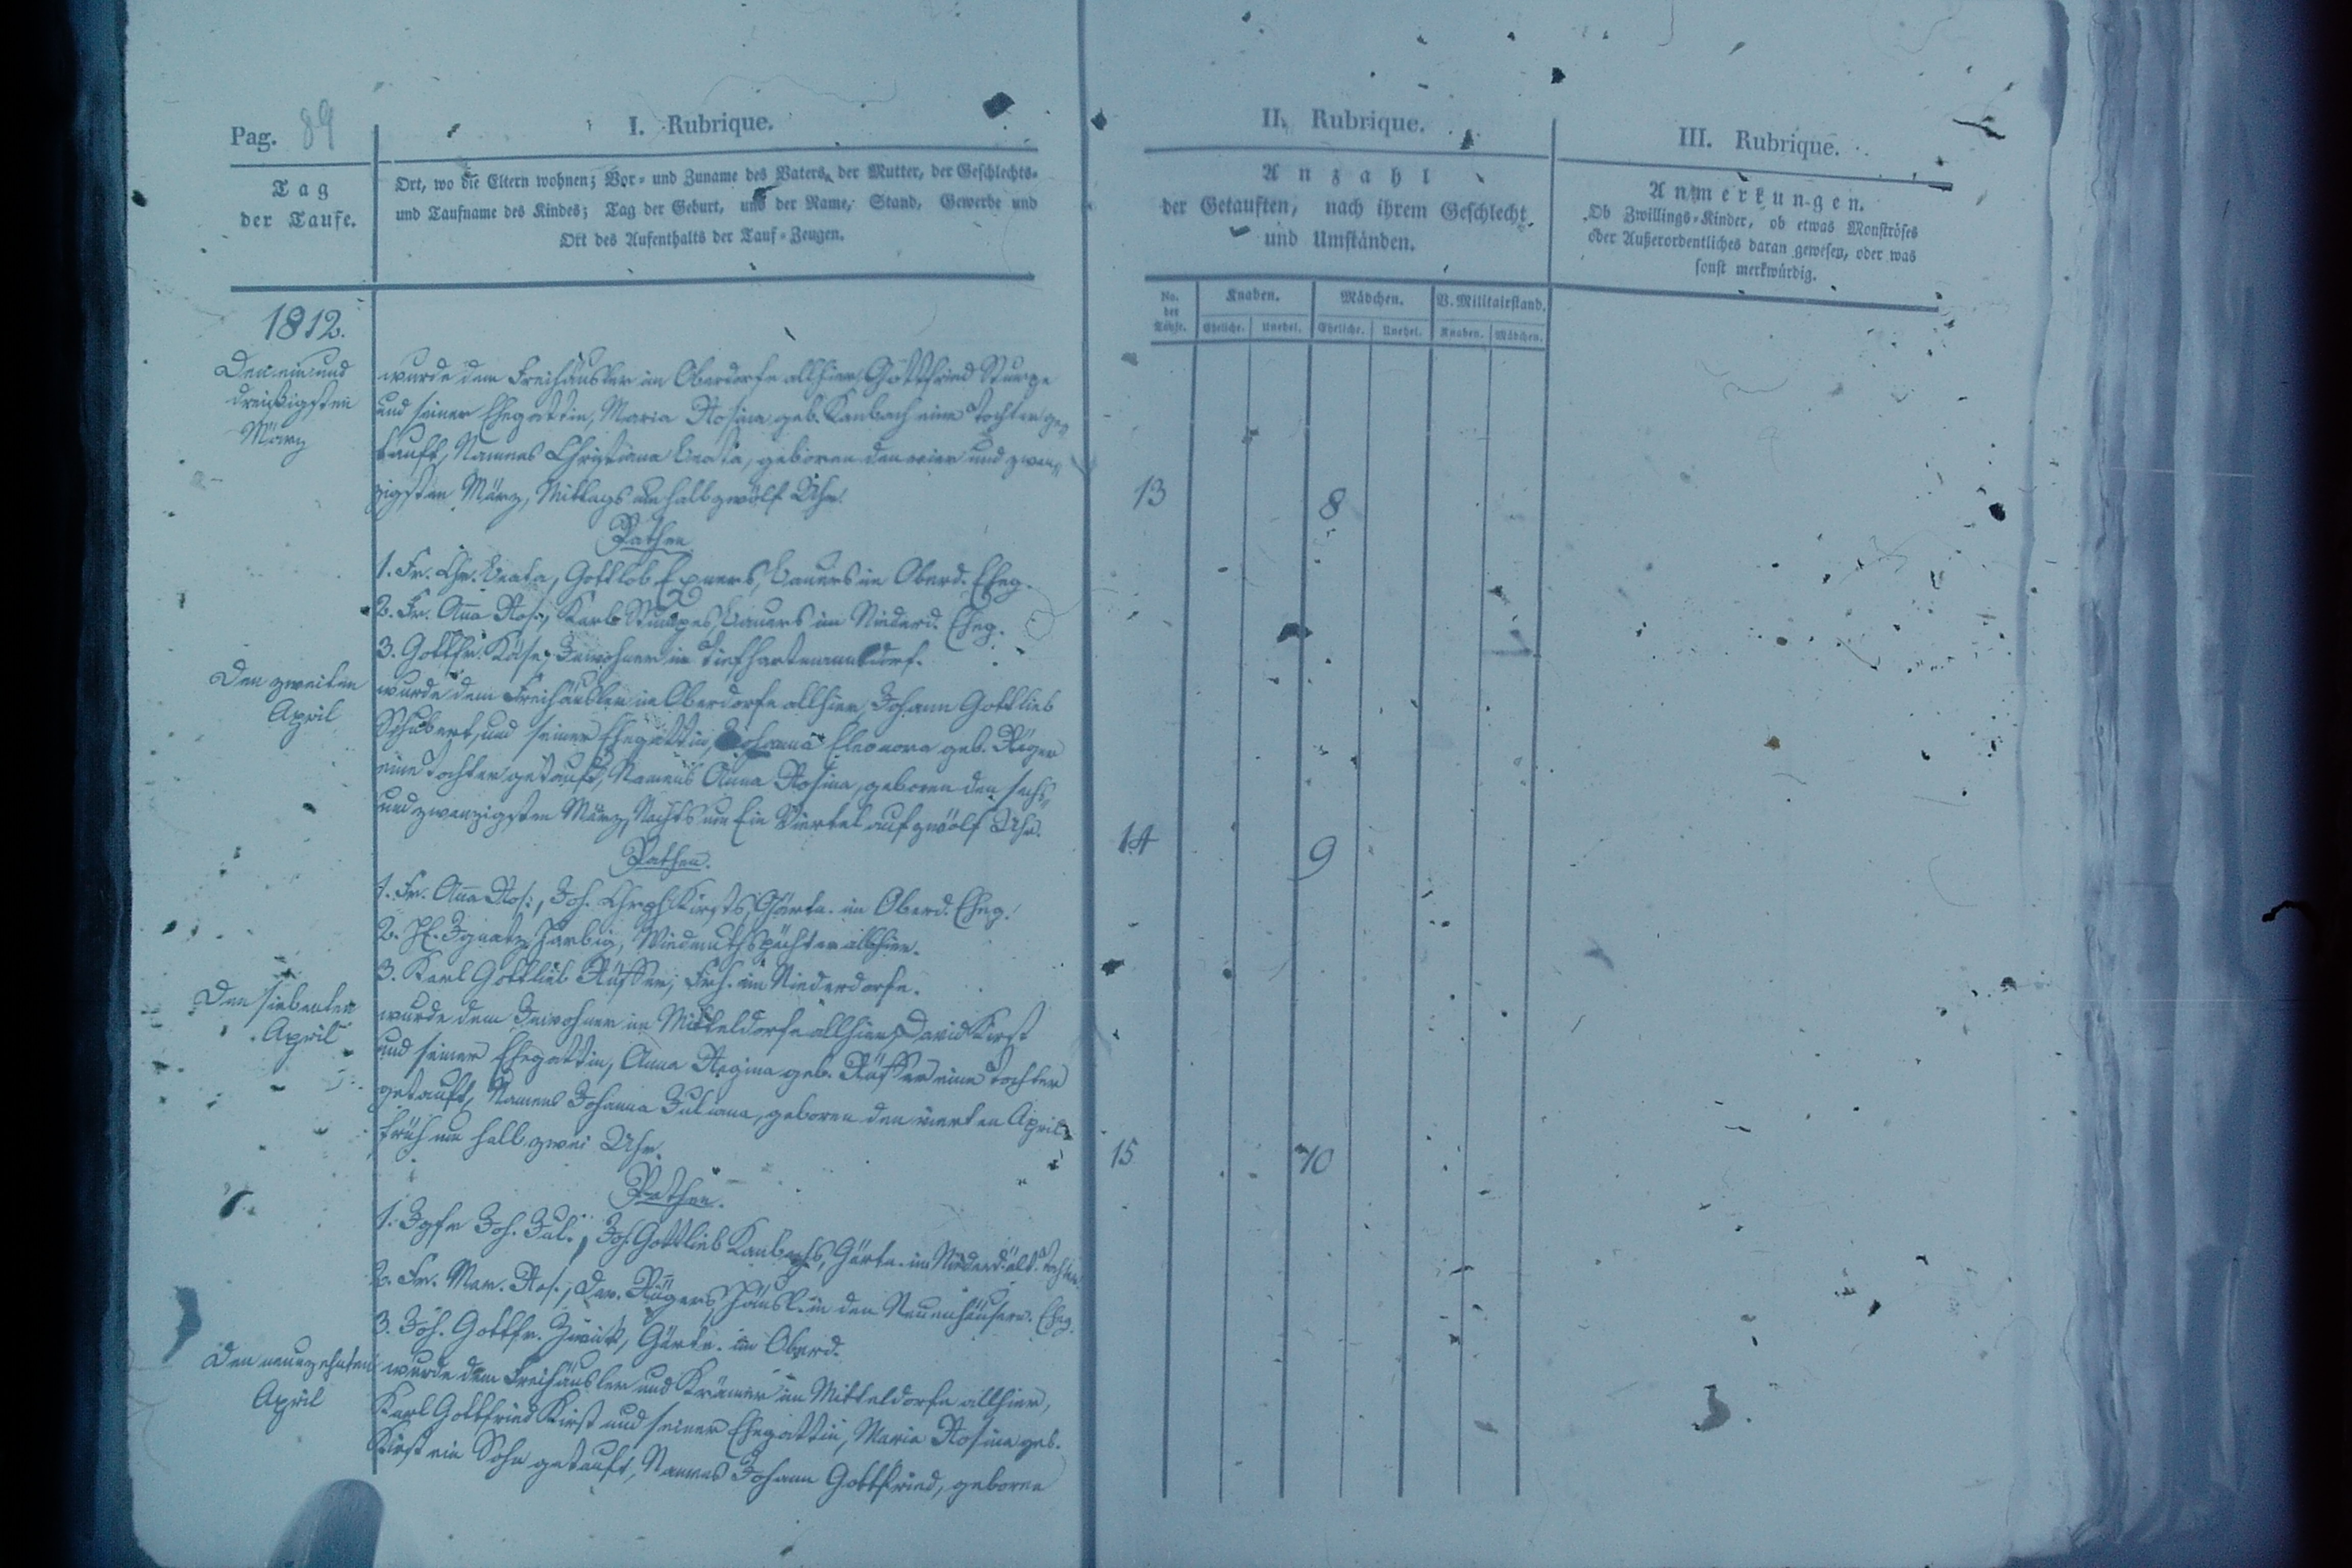 Pag. 89
I. Rubrique.
Tag
der Taufe.
Ort, wo die Eltern wohnen; Vor- und Zuname des Vaters, der Mutter, der Geschlechts-
und Taufname des Kindes; Tag der Geburt, und der Name, Stand, Gewerbe und
Ort des Aufenthalts der Tauf-Zeugen.
1812.
Den ein und
dreißigsten
März
wurde dem Freihäusler im Oberdorfe allhier, Gottfried Stumpe
und seiner Ehegattin, Maria Rosina geb. Kambach eine Tochter ge-
tauft, Namens Christiana Beata, geboren den vier und zwan-
zigsten März, Mittags um halb zwölf Uhr.
Pathen
1. Fr. Chr. Beata, Gottlob Exners, Bauers im Oberd. Eheg.
2. Fr. Anna Ros., Karl Stumpes, Bauers im Niederd. Eheg.
3. Gottfr. Käse, Inwohner in Tiefhartmannsdorf.
Den zweiten
April
wurde dem Freihäusler im Oberdorfe allhier, Johann Gottlieb
Schubert, und seiner Ehegattin, Johanna Eleonora geb. Röger
eine Tochter getauft, Namens Anna Rosina, geboren den sechs-
und zwanzigsten März, Nachts um Ein Viertel auf zwölf Uhr.
Pathen.
1. Fr. Anna Ros., Joh. Chrph Kirsts, Gärtn. im Oberd. Eheg.
2. H. Ignatz Harbig, Wiedmuthspächter allhier.
3. Karl Gottlieb Rüffer, Frh. im Niederdorfe.
Den siebenten
April
wurde dem Inwohner im Mitteldorfe allhier, David Kirst
und seiner Ehegattin, Anna Regina geb. Rüffer eine Tochter
getauft, Namens Johanna Juliana, geboren den vierten April,
früh um halb zwei Uhr.
Pathen.
1. Jgfr Joh. Jul., Joh. Gottlieb Kambachs, Gärtn. im Niederd. ält. Tochter
2. Fr. Mar. Ros., Dav. Rügers Häusl. in den Neuenhäusern. Eheg.
3. Joh. Gottfr. Zwick, Gärtn. im Oberd.
Den neunzehnten
April
wurde dem Freihäusler und Krämer im Mitteldorfe allhier,
Karl Gottfried Kirst und seiner Ehegattin, Maria Rosina geb.
Kirst ein Sohn getauft, Namens Johann Gottfried, geboren
II. Rubrique.
Anzahl
der Getauften, nach ihrem Geschlecht
und Umständen.
No. der Täufl.
Knaben. Mädchen. V. Militairstand.
Eheliche. Unehel. Eheliche. Unehel. Knaben. Mädchen.
13 8
14 9
15 10
III. Rubrique.
Anmerkungen.
Ob Zwillings-Kinder, ob etwas Monströses
oder Außerordentliches daran gewesen, oder was
sonst merkwürdig.